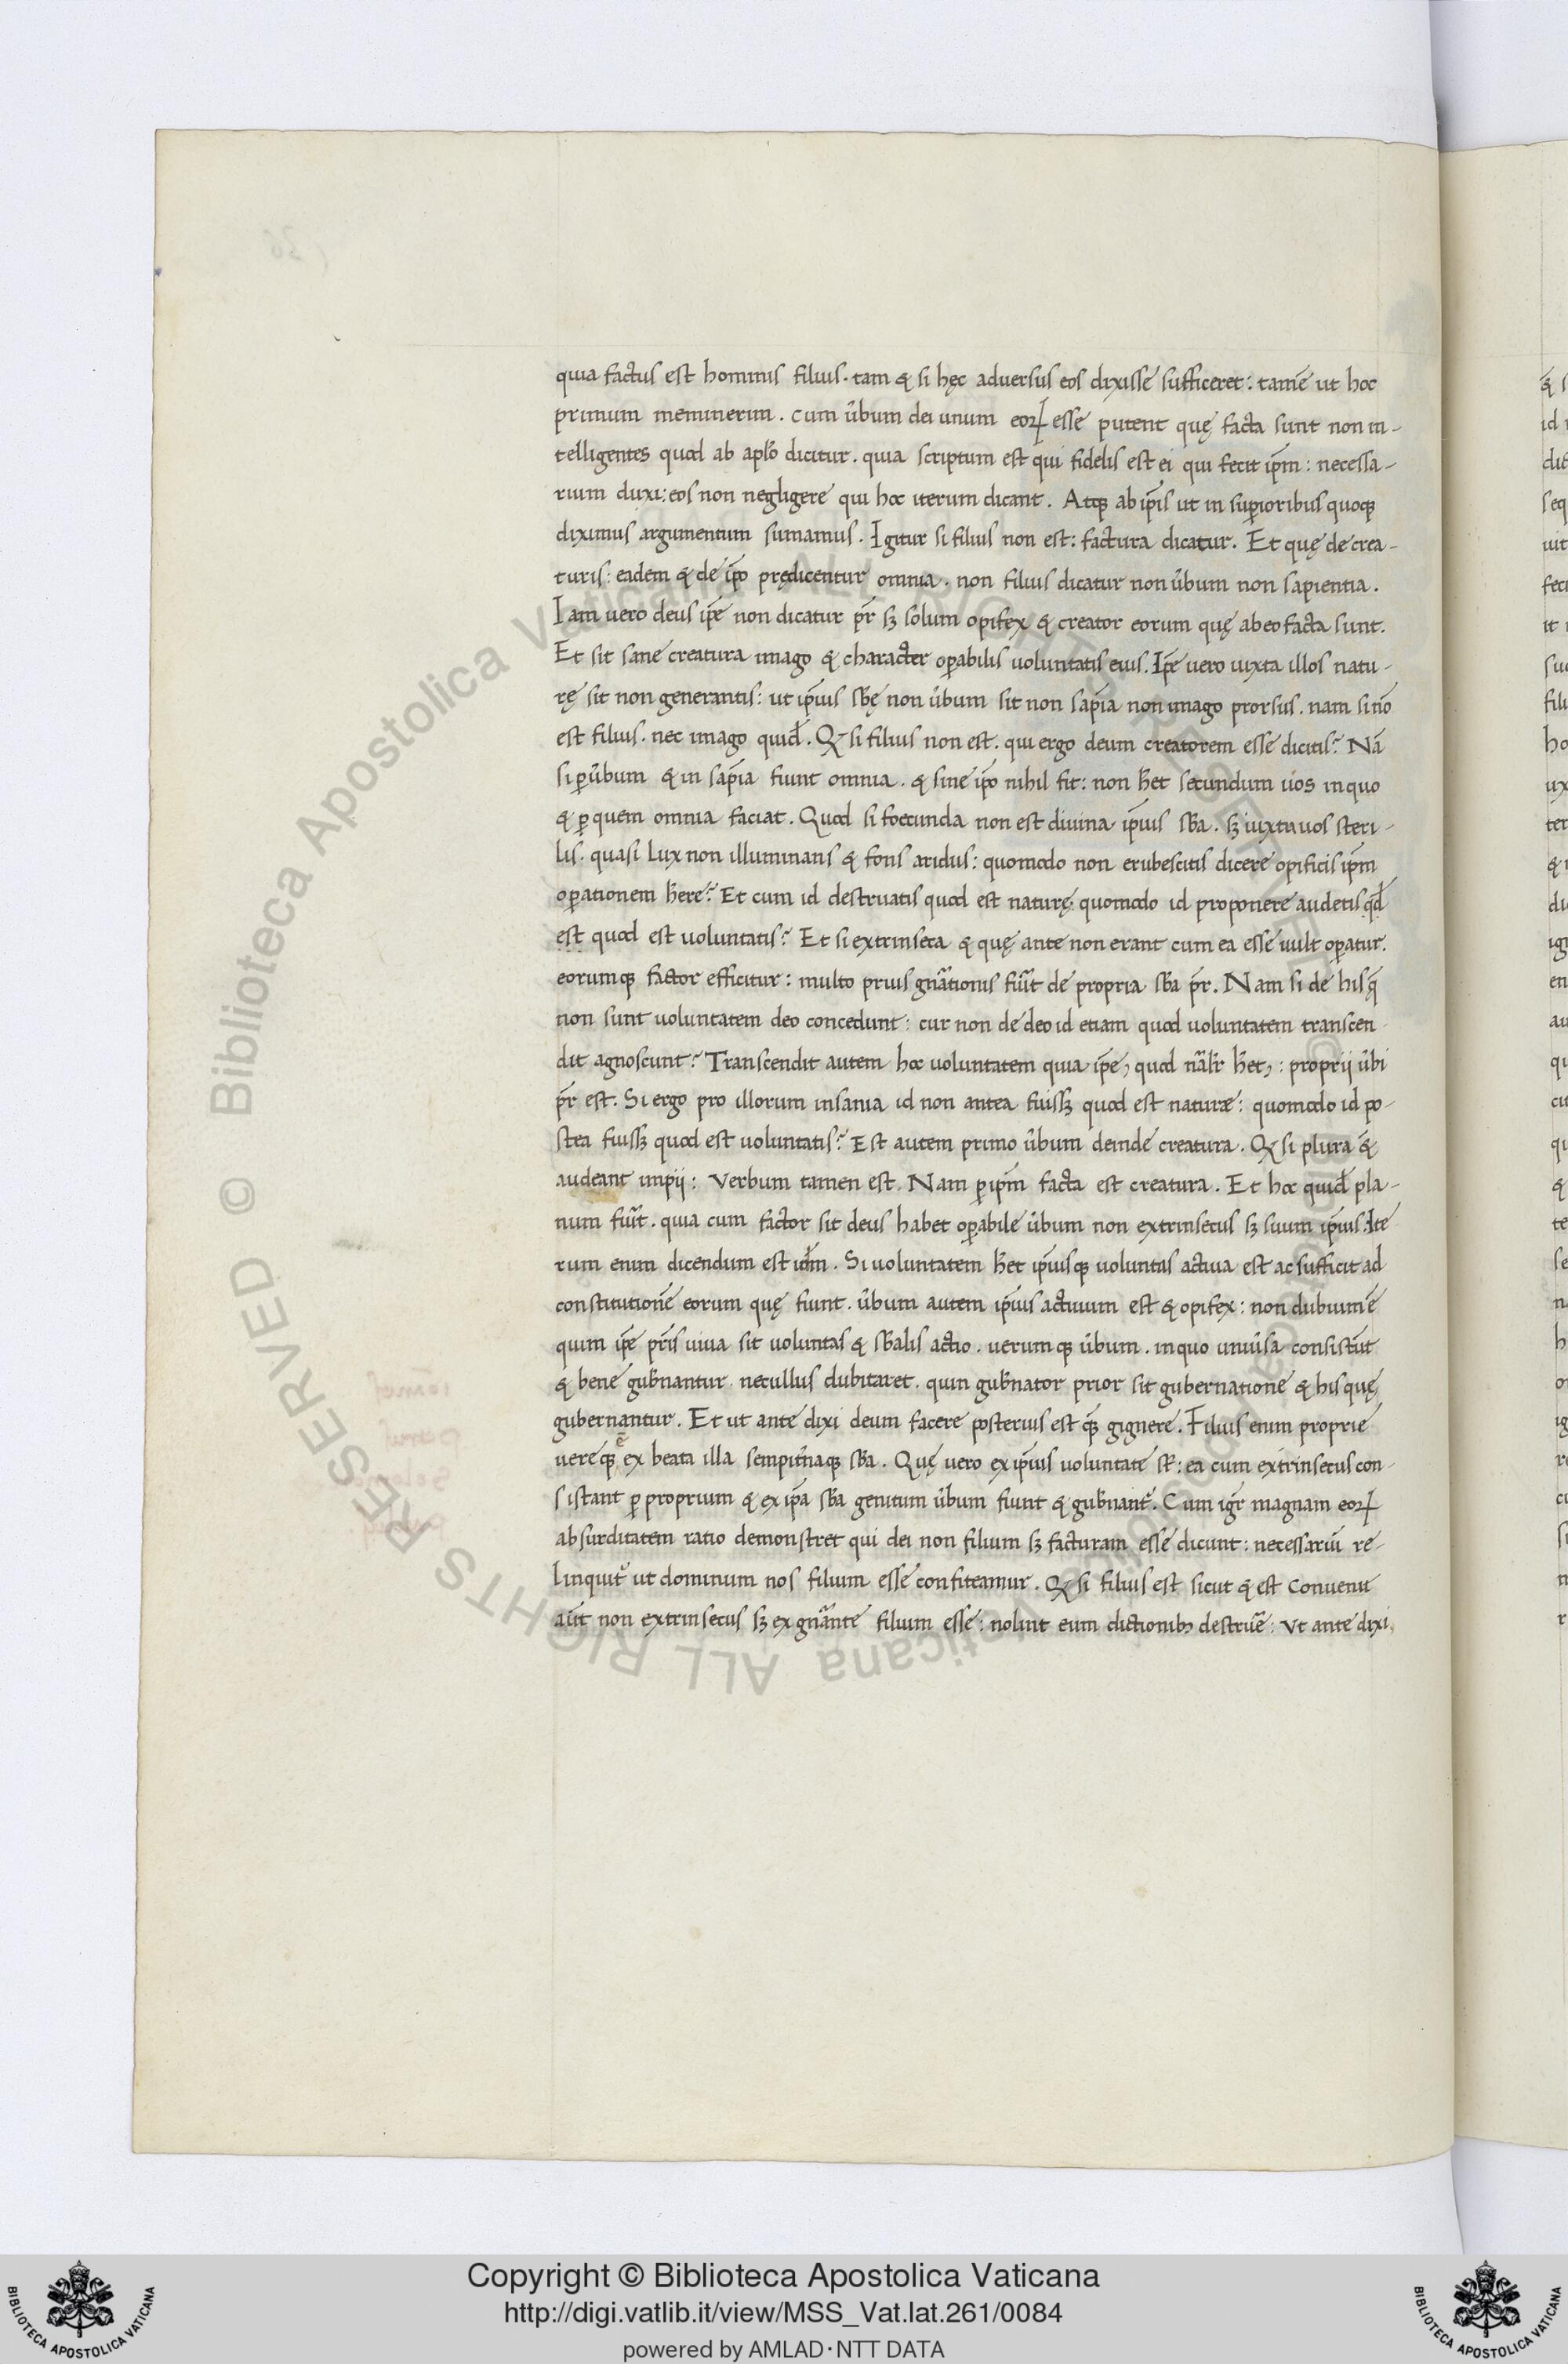 quia factus est hominis filius. tam & si hęc adversus eos dixisse sufficeret: tamē ut hoc
primum meminerim. cum ūbum dei unum eorꝝ esse putent quę facta sunt non in-
telligentes quod ab aplo dicitur. quia scriptum est qui fidelis est ei qui fecit ip̄m: necessa-
rium duxi: eos non negligere qui hoc iterum dicant. Atqꝫ ab ip̄is ut in sup̱ioribus quoqꝫ
diximus argumentum sumamus. Igitur si filius non est: factura dicatur. Et quę de crea-
turis: eadem & de ip̄o prędicentur omnia. non filius dicatur non ūbum non sapientia.
Iam uero deus ip̄e non dicatur pr̄ sꝫ solum opifex & creator eorum quę ab eo facta sunt.
Et sit sane creatura imago & character op̱abilis uoluntatis eius. Ip̄e uero iuxta illos natu-
rę sit non generantis: ut ip̄ius sb̄ę non ūbum sit non sap̄ia non imago prorsus. nam si nō
est filius. nec imago quid̄. Qꝫ si filius non est. qui ergo deum creatorem esse dicitis? Nā
si ꝑ ūbum & in sap̄ia fiunt omnia. & sine ip̄o nihil fit: non h̄et secundum uos in quo
& ꝑ quem omnia faciat. Quod si foecunda non est diuina ip̄ius sb̄a. sꝫ iuxta uos steri-
lis. quasi lux non illuminans & fons aridus: quomodo non erubescitis dicere opificis ip̄m
oꝑationem h̄ere? Et cum id destruatis quod est naturę: quomodo id proponere audetis qd̄
est quod est uoluntatis? Et si extrinseca & quę ante non erant cum ea esse uult oꝑatur.
eorumqꝫ factor efficitur: multo prius gn̄ationis fu̅it de propria sb̄a pr̄. Nam si de his q̄
non sunt uoluntatem deo concedunt: cur non de deo id etiam quod uoluntatem transcen-
dit agnoscunt? Transcendit autem hoc uoluntatem quia ip̄e, quod nālr h̄et,: proprij ūbi
pr̄ est. Si ergo pro illorum insania id non antea fuissꝫ quod est naturæ: quomodo id po-
stea fuissꝫ quod est uoluntatis? Est autem primo ūbum deinde creatura. Qꝫ si plura &
audeant impij: verbum tamen est. Nam ꝑ ip̄m facta est creatura. Et hoc quid̄ pla-
num fu̅it. quia cum factor sit deus habet oꝑabile ūbum non extrinsecus sꝫ suum ip̄ius. Ite
rum enim dicendum est id̄m. Si uoluntatem h̄et ip̄iusqꝫ uoluntas actiua est ac sufficit ad
constitutionē eorum quę fiunt. ūbum autem ip̄ius actiuum est & opifex: non dubium ē
quin ip̄e pr̄is uiua sit uoluntas & sb̄alis actio. uerumqꝫ ūbum. in quo uniūsa consistūt
& bene gub̄nantur. nec ullus dubitaret. quin gub̄nator prior sit gubernatione & his quę
gubernantur. Et ut ante dixi deum facere posterius est qꝫ̄ gignere. Filius enim proprie
uereqꝫ ē ex beata illa sempit̄naqꝫ sb̄a. Quę uero ex ip̄ius uoluntate st̄: ea cum extrinsecus con-
sistant ꝑ proprium & ex ip̄a sb̄a genitum ūbum fiunt & gub̄nant᷑. Cum igr̄ magnam eorꝝ
absurditatem ratio demonstret qui dei non filium sꝫ facturam esse dicunt: necessariū re-
linquit᷑ ut dominum nos filium esse confiteamur. Qꝫ si filius est sicut & est conuenit
aūt non extrinsecus sꝫ ex gn̄ante filium esse: nolint eum dictionibꝫ destruē: Vt ante dixi
Copyright © Biblioteca Apostolica Vaticana
http://digi.vatlib.it/view/MSS_Vat.lat.261/0084
powered by AMLAD·NTT DATA
BIBLIOTECA APOSTOLICA VATICANA
BIBLIOTECA APOSTOLICA VATICANA
© Biblioteca Apostolica Vaticana ALL RIGHTS RESERVED
© Biblioteca Apostolica Vaticana ALL RIGHTS RESERVED